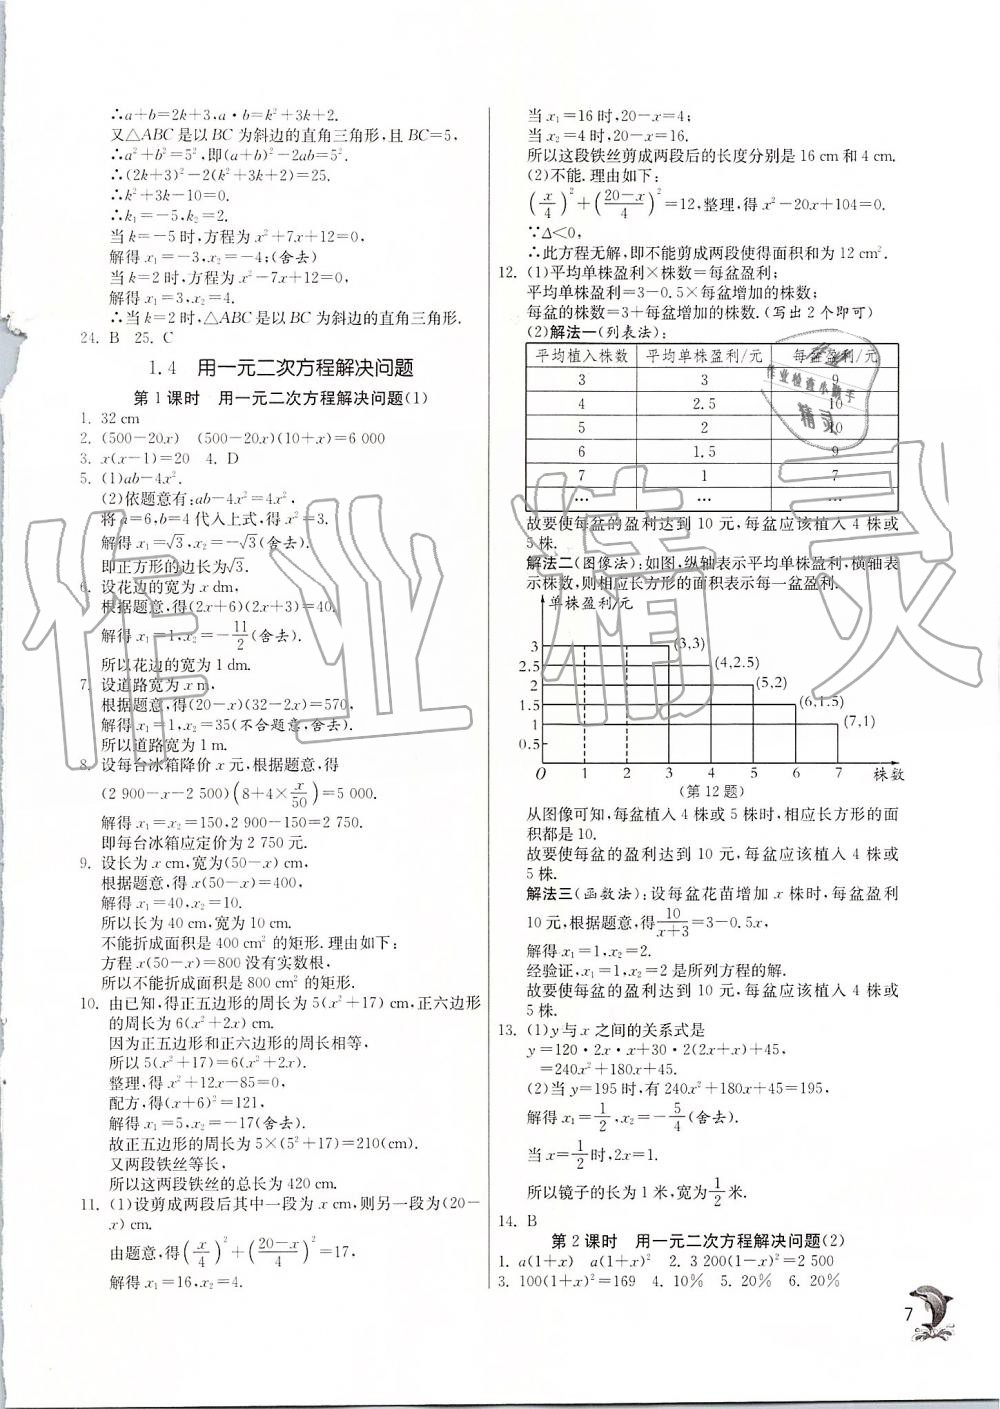 ∴a+b=2k+3,a·b=k²+3k+2.
又△ABC是以BC为斜边的直角三角形,且BC=5,
∴a²+b²=5²,即(a+b)²-2ab=5².
∴(2k+3)²-2(k²+3k+2)=25.
∴k²+3k-10=0.
∴k₁=-5,k₂=2.
当k=-5时,方程为x²+7x+12=0,
解得x₁=-3,x₂=-4;(舍去)
当k=2时,方程为x²-7x+12=0,
解得x₁=3,x₂=4.
∴当k=2时,△ABC是以BC为斜边的直角三角形.
24. B 25. C
1.4 用一元二次方程解决问题
第1课时 用一元二次方程解决问题(1)
1. 32 cm
2. (500-20x) (500-20x)(10+x)=6 000
3. x(x-1)=20 4. D
5. (1)ab-4x².
(2)依题意有:ab-4x²=4x²,
将a=6,b=4代入上式,得x²=3.
解得x₁=√3,x₂=-√3(舍去).
即正方形的边长为√3.
6. 设花边的宽为x dm,
根据题意,得(2x+6)(2x+3)=40.
解得x₁=1,x₂=-11/2(舍去).
所以花边的宽为1 dm.
7. 设道路宽为x m,
根据题意,得(20-x)(32-2x)=570,
解得x₁=1,x₂=35(不合题意,舍去).
所以道路宽为1 m.
8. 设每台冰箱降价x元,根据题意,得
(2 900-x-2 500)(8+4×x/50)=5 000.
解得x₁=x₂=150,2 900-150=2 750.
即每台冰箱应定价为2 750元.
9. 设长为x cm,宽为(50-x) cm,
根据题意,得x(50-x)=400,
解得x₁=40,x₂=10.
所以长为40 cm,宽为10 cm.
不能折成面积是400 cm²的矩形.理由如下:
方程x(50-x)=800没有实数根,
所以不能折成面积是800 cm²的矩形.
10. 由已知,得正五边形的周长为5(x²+17) cm,正六边形
的周长为6(x²+2x) cm.
因为正五边形和正六边形的周长相等,
所以5(x²+17)=6(x²+2x).
整理,得x²+12x-85=0,
配方,得(x+6)²=121,
解得x₁=5,x₂=-17(舍去).
故正五边形的周长为5×(5²+17)=210(cm).
又两段铁丝等长,
所以这两段铁丝的总长为420 cm.
11. (1)设剪成两段后其中一段为x cm,则另一段为(20-
x) cm.
由题意,得(x/4)²+((20-x)/4)²=17,
解得x₁=16,x₂=4.
当x₁=16时,20-x=4;
当x₂=4时,20-x=16.
所以这段铁丝剪成两段后的长度分别是16 cm和4 cm.
(2)不能.理由如下:
(x/4)²+((20-x)/4)²=12,整理,得x²-20x+104=0.
∵Δ<0,
∴此方程无解,即不能剪成两段使得面积和为12 cm².
12. (1)平均单株盈利×株数=每盆盈利;
平均单株盈利=3-0.5×每盆增加的株数;
每盆的株数=3+每盆增加的株数.(写出2个即可)
(2)解法一(列表法):
平均植入株数 平均单株盈利/元 每盆盈利/元
3 3 9
4 2.5 10
5 2 10
6 1.5 9
7 1 7
… … …
故要使每盆的盈利达到10元,每盆应该植入4株或
5株.
解法二(图像法):如图,纵轴表示平均单株盈利,横轴表
示株数,则相应长方形的面积表示每一盆盈利.
单株盈利/元
3
2.5
2
1.5
1
0.5
(3,3)
(4,2.5)
(5,2)
(6,1.5)
(7,1)
O 1 2 3 4 5 6 7 株数
(第12题)
从图像可知,每盆植入4株或5株时,相应长方形的面
积都是10.
故要使每盆的盈利达到10元,每盆应该植入4株或
5株.
解法三(函数法):设每盆花苗增加x株时,每盆盈利
10元,根据题意,得10/(x+3)=3-0.5x,
解得x₁=1,x₂=2.
经验证,x₁=1,x₂=2是所列方程的解.
故要使每盆的盈利达到10元,每盆应该植入4株或
5株.
13. (1)y与x之间的关系式是
y=120·2x·x+30·2(2x+x)+45,
=240x²+180x+45.
(2)当y=195时,有240x²+180x+45=195.
解得x₁=1/2,x₂=-5/4(舍去).
当x=1/2时,2x=1.
所以镜子的长为1米,宽为1/2米.
14. B
第2课时 用一元二次方程解决问题(2)
1. a(1+x) a(1+x)² 2. 3 200(1-x)²=2 500
3. 100(1+x)²=169 4. 10% 5. 20% 6. 20%
7
作业精灵
作业检查小助手
精灵